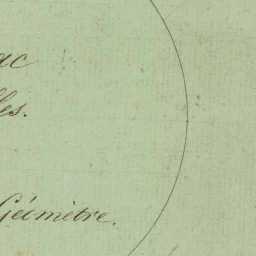 ac
les.
Géomètre.